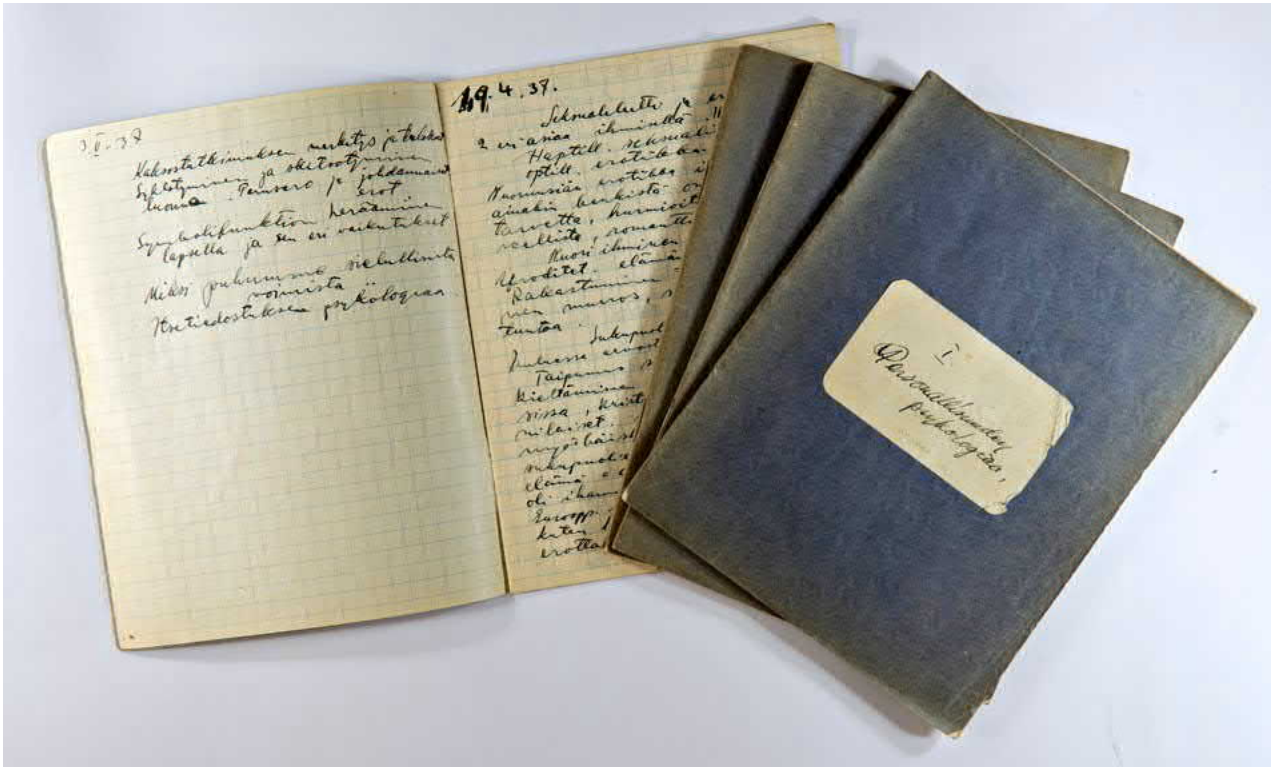 3.V.37
Kaksostutkimuksen merkitys ja tulokset
Syklotyyminen ja skitsotyyminen
luonne. Perusero ja johdannaiset
erot
Symbolifunktion herääminen
lapsella ja sen eri vaikutukset
Miksi puhumme sielullisista
voimista
Itsetiedostuksen psykologiaa
19.4.37.
Seksualiteetti ja er
2 eri asiaa ihmisellä !!
Haptill. seksuali
optill. erotiikka
Nuoruusiän erotiikka
ainakin henkistä
tarvetta,
reellista, romantti
Nuori ihminen
elämän
Rakastuminen
nen murros,
tuntoa.
Sukupuol
Taipumus
kieltäminen
sissa, krist
nilaiset.
myöhäis
sukupuoli
elämä
oli ihann
Europp
kuten
erotta
I.
Personallisuuden
psykologiaa,